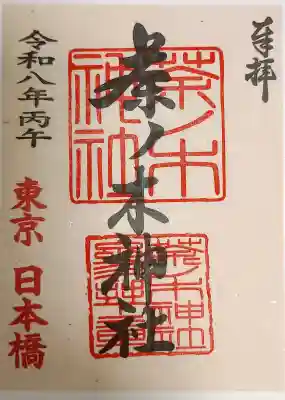 奉拝
茶ノ木神社
茶ノ木
神社
令和八年丙午
東京 日本橋